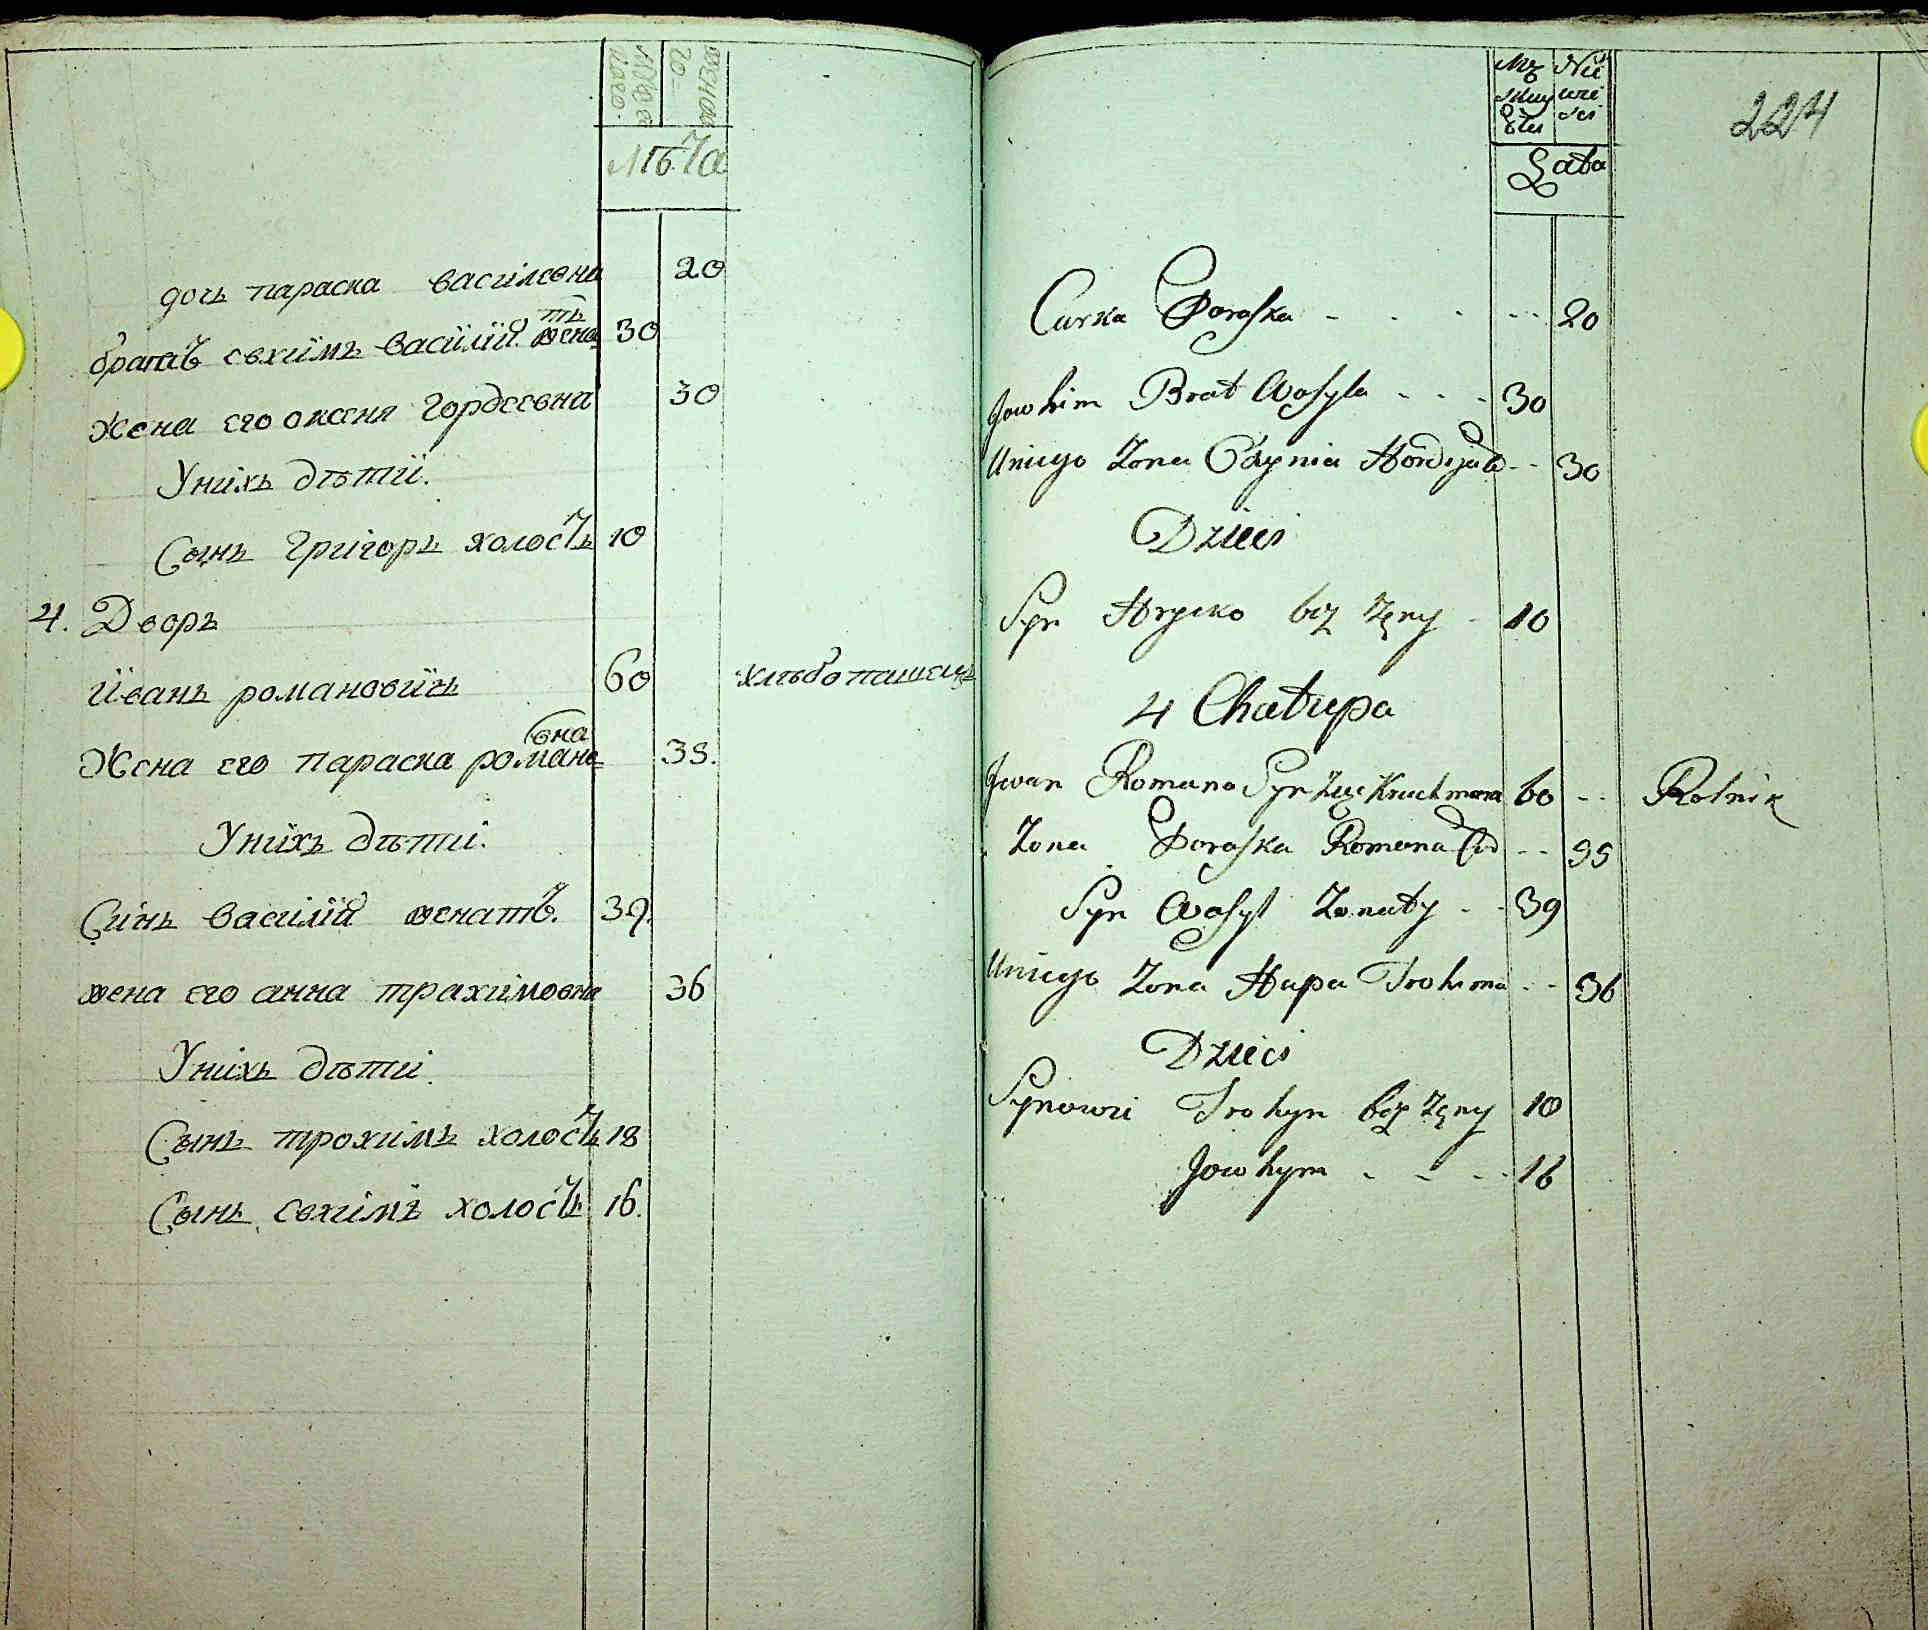 мужеска
го
женска
лѣта
дочь параска василевна 20
братъ евхимъ василий женатъ 30
Жена его оксеня гордеевна 30
Унихъ дѣти.
Сынъ григоръ холостъ 10
4. Дворъ
Иванъ романовичъ 60 хлѣбопашецъ
Жена его параска романовна 35.
Унихъ дѣти.
Синъ василий женатъ. 39.
жена его анна трахимовна 36
Унихъ дѣти.
Сынъ трохимъ холостъ 18
Сынъ евхимъ холостъ 16.
224
Mę Nie
wie
Lata
Curka Paraska - . . . 20
Jowhim Brat Wasyla - - - 30
Uniego Zona Hordyja - - 30
Dzieci
Syn Hrycko bez Zęny - 10
4 Chatupa
Jwan Romana Syn 60 - - Rolnik
Zona Paraska Romana - - 35
Syn Wasyl Zonaty - - 39
Uniego Zona Hapa Trohima - - 36
Dzieci
Synowie Trohym bez Zęny 10
Jowhym - - - 16